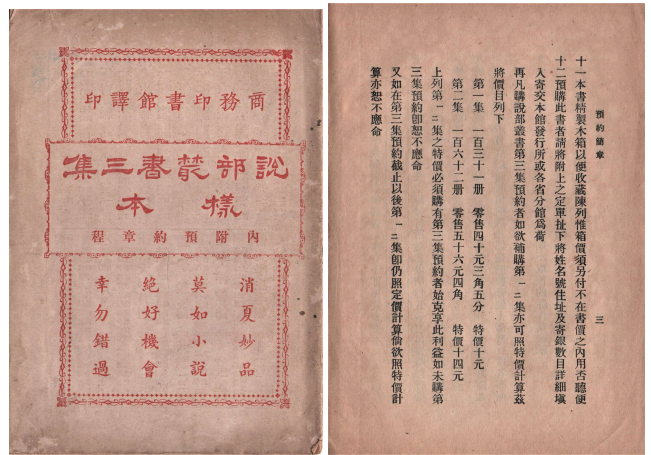 商務印書館譯印
說部叢書三集
樣本
內附預約章程
消夏妙品
莫如小說
絕好機會
幸勿錯過
預約簡章
三
十一本書精製木箱以便收藏陳列惟箱價須另付不在書價之內用否聽便
十二預購此書者請將附上之定單扯下將姓名號住址及寄銀數目詳細塡
入寄交本館發行所或各省分館爲荷
再凡購說部叢書第三集預約者如欲補購第一二集亦可照特價計算茲
將價目列下
第一集 一百三十一册 零售四十元三角五分 特價十元
第二集 一百六十二册 零售五十六元四角 特價十四元
上列第一二集之特價必須購有第三集預約者始克享此利益如未購第
三集預約卽恕不應命
又如在第三集預約截止以後第一二集卽仍照定價計算倘欲照特價計
算亦恕不應命